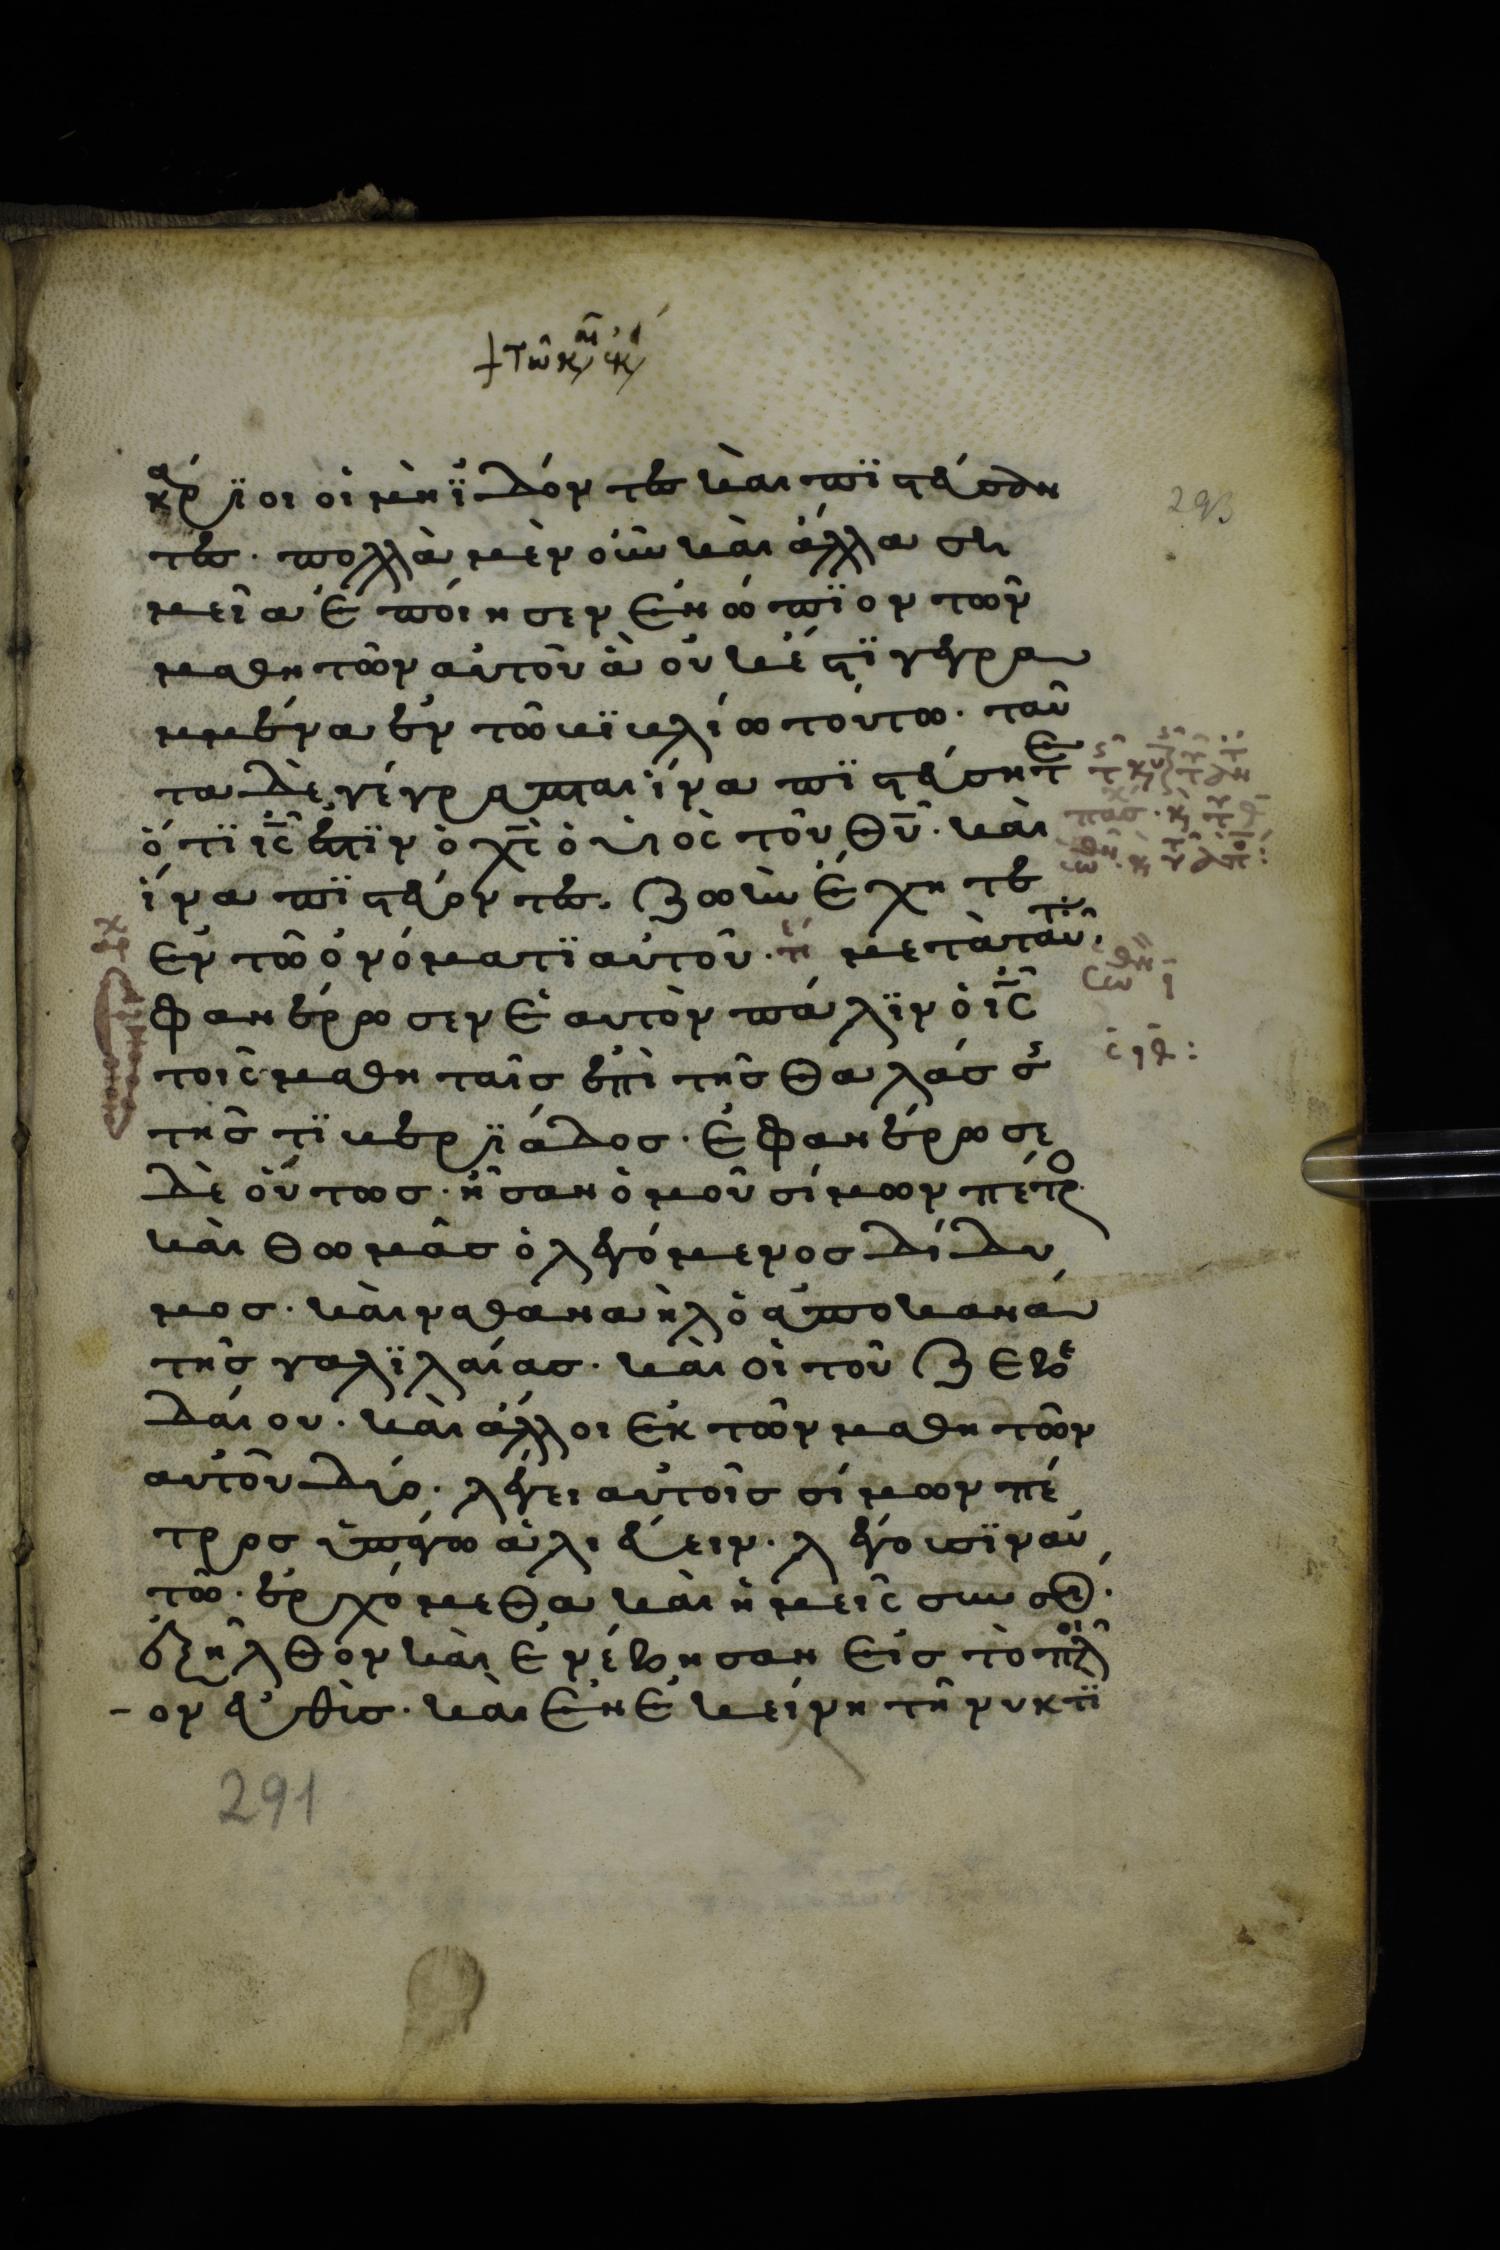 κάριοι οἱ μὴ ἰδόντες καὶ πιστεύσαν
τες. πολλὰ μὲν οὖν καὶ ἄλλα ση
μεῖα ἐποίησεν ἐνώπϊον τῶν
μαθητῶν αὐτοῦ ἃ οὐκ ἔστϊ γεγρα
μμένα ἐν τῶ βϊβλίω τούτω. ταῦ
τα δὲ γέγραπται ἵνα πϊστεύσητε
ὅτϊ ις̅ ἐστϊν ὁ χς̅ ὁ υἱὸς τοῦ θυ̅. καὶ
ἵνα πϊστεύοντες. ζωὴν ἔχητε
ἐν τῶ ὀνόματϊ αὐτοῦ. μετὰ ταῦτ
φανέρωσεν ἑαυτὸν πάλϊν ὁ ις̅
τοῖς μαθηταῖς ἐπὶ τῆς θαλάσς
τῆς τϊβερϊάδος. ἐφανέρωσε
δὲ οὕτως. ἦσαν ὁμοῦ σίμων πέτρο
καὶ θωμᾶς ὁ λεγόμενος δίδυ
μος. καὶ ναθαναὴλ ὁ ἀπὸ κανᾶ
τῆς γαλϊλαίας. καὶ οἱ τοῦ ζεβε
δαίου. καὶ ἄλλοι ἐκ τῶν μαθητῶν
αὐτοῦ δύο. λέγει αὐτοῖς σίμων πέ
τρος ὑπάγω ἁλιεύειν. λέγουσϊν αὐ
τῶ. ἐρχόμεθα καὶ ἡμεῖς σὺν σοί.
ἐξῆλθον καὶ ἐνέβησαν εἰς τὸ πλοῖ
ον εὐθὺς. καὶ ἐν ἐκείνη τῆ νυκτϊ
291
293